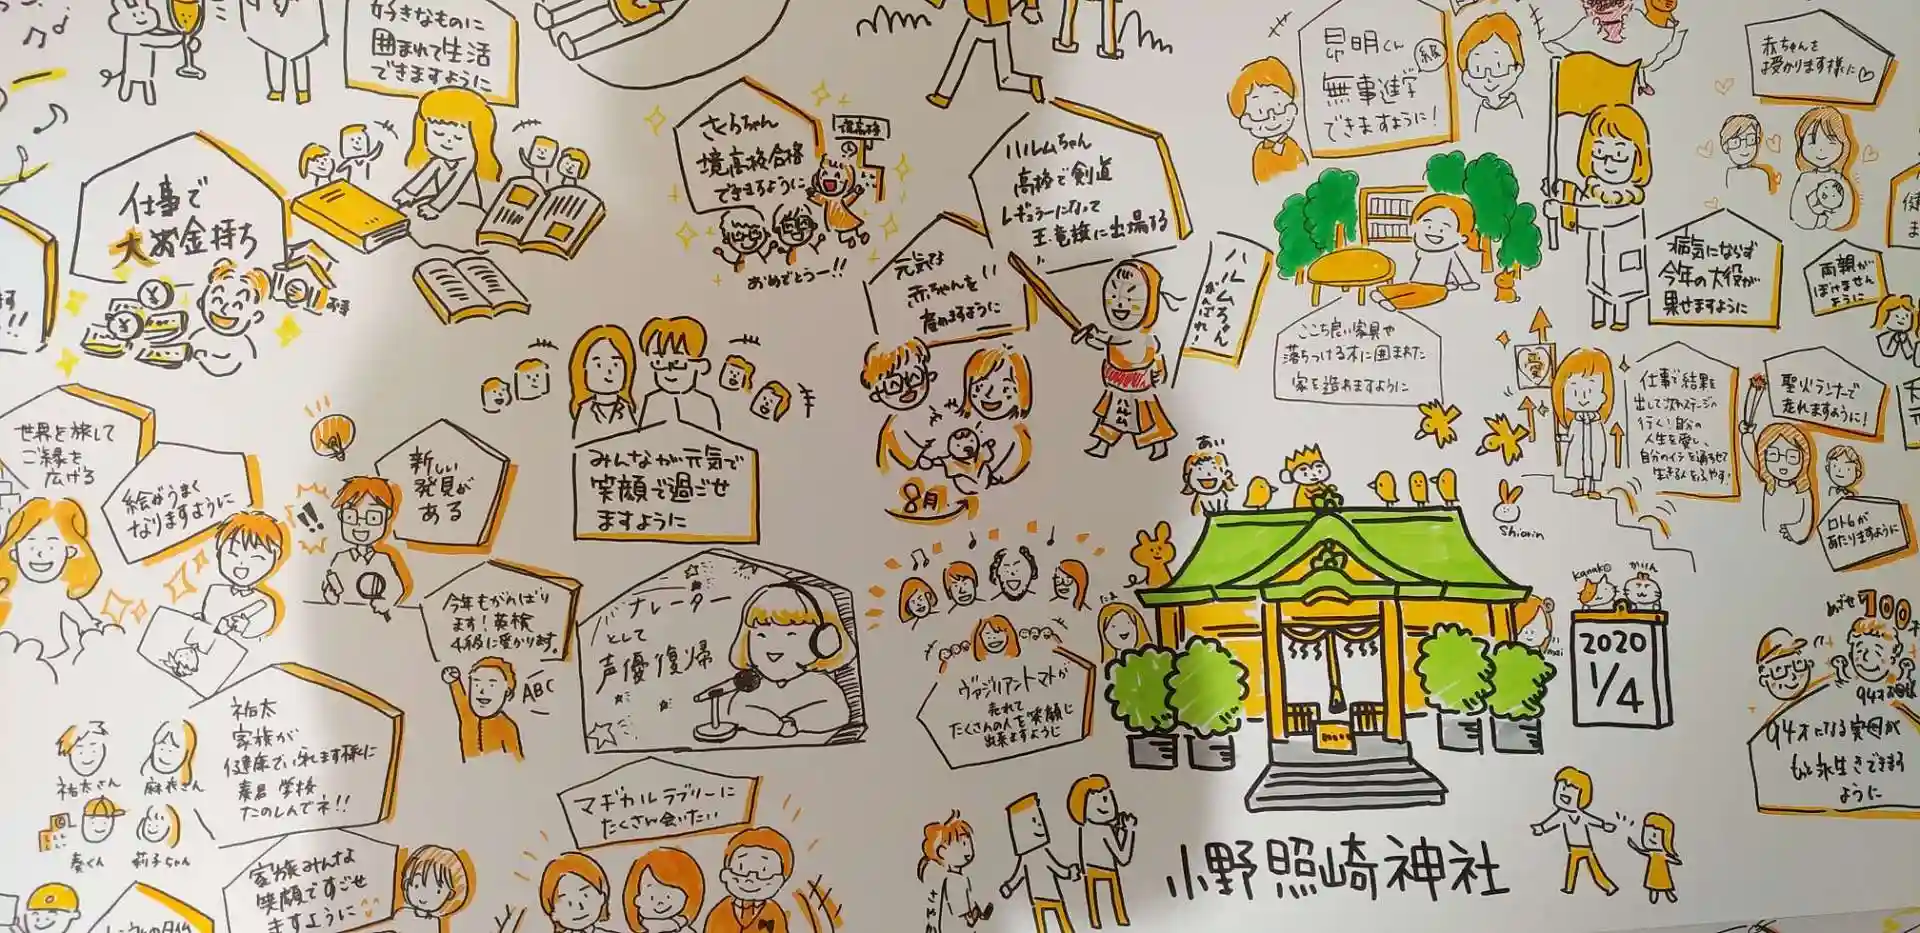 好きなものに
囲まれて生活
できますように
仕事で
大お金持ち
さくらちゃん
境高校合格
できますように
おめでとうー!!
ハルムちゃん
高校で剣道
レギュラーになって
玉竜旗に出場する
ハルムちゃん
がんばれ!
元気な
赤ちゃんを
産めますように
8月
昂明くん
無事進級
できますように!
赤ちゃんを
授かります様に
病気にならず
今年の大役が
果せますように
両親が
ぼけません
ように
ここち良い家具や
落ちつける木に囲まれた
家を造れますように
愛
仕事で結果を
出して次のステージへ
行く!自分の
人生を愛し、
聖火ランナーで
走れますように!
ロト6が
あたりますように
世界を旅して
ご縁を
広げる
絵がうまく
なりますように
新しい
発見が
ある
!!
みんなが元気で
笑顔で過ごせ
ますように
今年もがんばり
ます!英検
4級に受かります。
ABC
ナレーター
として
声優復帰
ヴァジリアントマトが
売れて
たくさんの人を笑顔に
出来ますように
あい
Shiorin
Kanako
かりん
mai
2020
1/4
めざせ
100
94才になる実母が
もっと永生きできます
ように
祐太
家族が
健康でいられます様に
奏君 学校
たのしんでネ!!
祐太さん
麻衣さん
奏くん
莉子ちゃん
マギカルラブリーに
たくさん会いたい
家族みんな
笑顔ですごせ
ますように
小野照崎神社